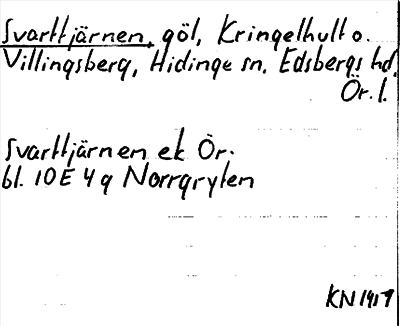 Svarttjärnen, göl, Kringelhult o.
Villingsberg, Hidinge sn, Edsbergs hd,
Ör. l.
Svarttjärnen ek Ör.
bl. 10E 4 g Norrgryten
KN 1917